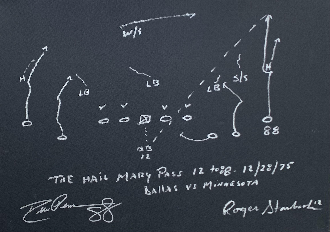 W/S
H
H
LB
LB
LB
S/S
88
QB
12
THE HAIL MARY PASS 12 to 88 - 12/28/75
DALLAS VS MINNESOTA
88
Roger Staubach 12